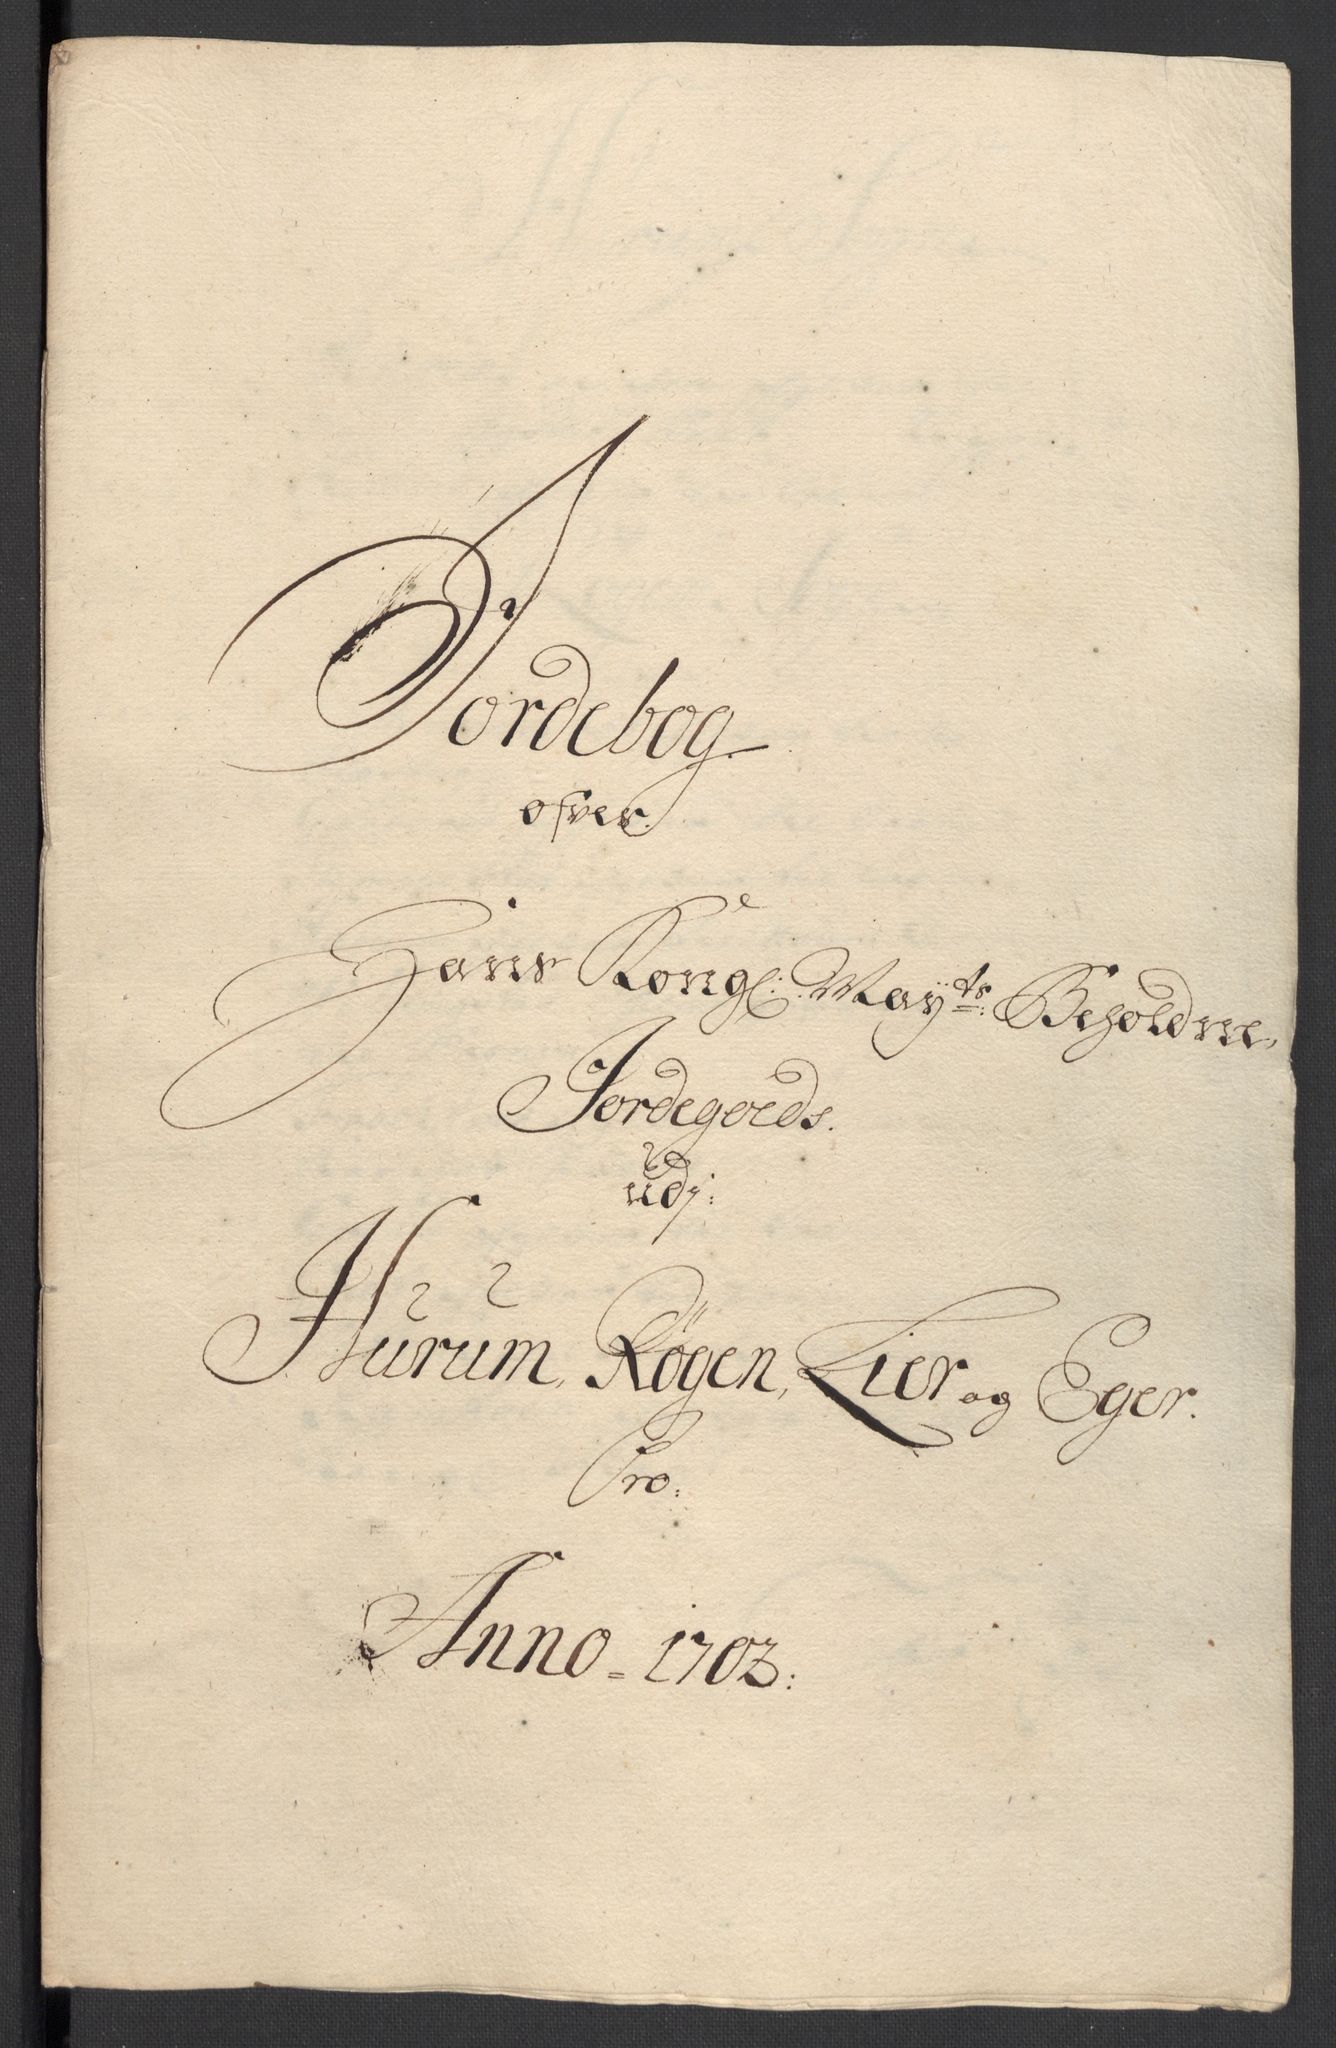 Jordebog
ofver
Hans Kongl: Mayts: Beholdne,
Jordegoeds.
udj:
Hurum, Røgen, Lier og Eger.
Pro.
Anno = 1703: